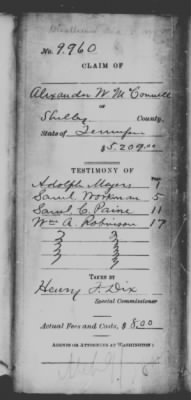 No. 9.960
CLAIM OF
Alexander W. McConnell
of
Shelby County,
State of Tennessee
$5,209.00
TESTIMONY OF
Page
Adolph Mayers 1
Saml. Workman 5
Saml. C. Paine 11
Wm. A. Robinson 17
TAKEN BY
Henry F. Dix
Special Commissioner
Actual Fees and Costs, $8.00
AGENTS OR ATTORNEYS AT WASHINGTON: